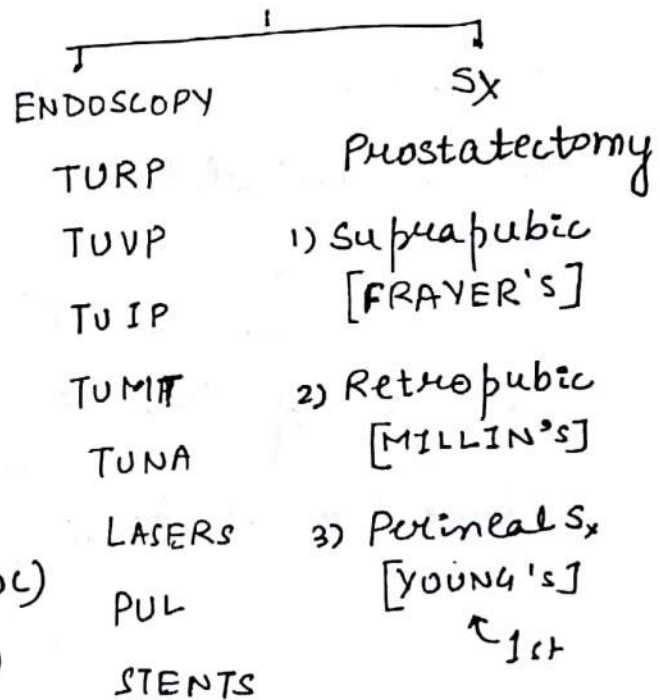 ENDOSCOPY
TURP
TUVP
TUIP
TUMT
TUNA
LASERS
PUL
STENTS
Sx
Prostatectomy
1) Suprapubic
[FRAYER'S]
2) Retropubic
[MILLIN'S]
3) Perineal Sx
[YOUNG'S]
1st